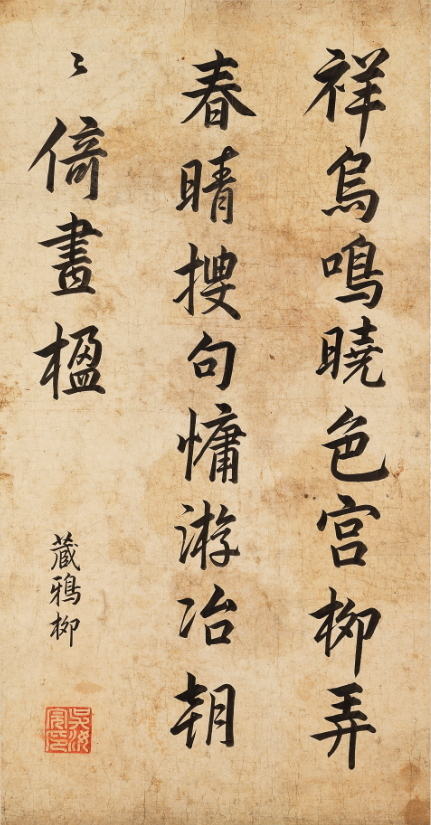 祥烏鳴曉色宮柳弄
春晴搜句慵游冶朝
〻倚畫楹
藏鴉柳